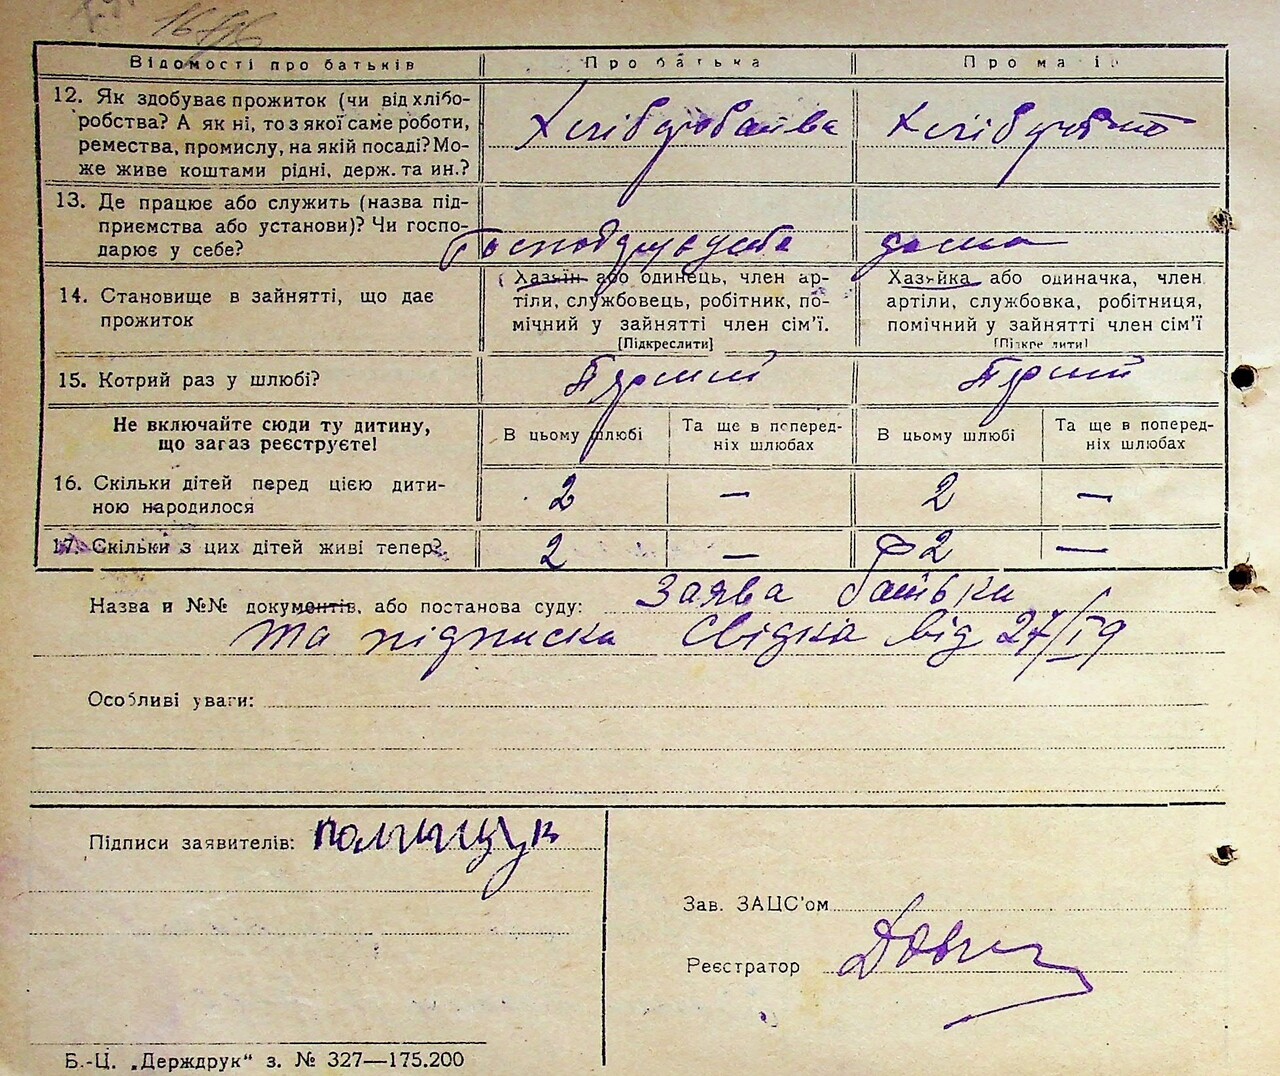 Відомості про батьків Про батька Про матір
12. Як здобуває прожиток (чи від хлібо-
робства? А як ні, то з якої саме роботи,
ремества, промислу, на якій посаді? Мо-
же живе коштами рідні, держ. та ин.?
13. Де працює або служить (назва під-
приємства або установи)? Чи госпо-
дарює у себе?
дома
14. Становище в зайнятті, що дає
прожиток
Хазяїн або одинець, член ар-
тіли, службовець, робітник, по-
мічний у зайнятті член сім'ї.
[Підкреслити]
Хазяйка або одиначка, член
артіли, службовка, робітниця,
помічний у зайнятті член сім'ї
[Підкреслити]
15. Котрий раз у шлюбі? Перший Перший
Не включайте сюди ту дитину,
що загаз реєструєте!
В цьому шлюбі
Та ще в поперед-
ніх шлюбах
В цьому шлюбі
Та ще в поперед-
ніх шлюбах
16. Скільки дітей перед цією дити-
ною народилося
2 — 2 —
17. Скільки з цих дітей живі тепер? 2 — 2 —
Назва и №№ документів, або постанова суду: Заява батька
та підписка свідка від 27/IV
Особливі уваги:
Підписи заявителів: Полищук
Зав. ЗАЦС'ом
Реєстратор
Б.-Ц. „Держдрук“ з. № 327—175.200